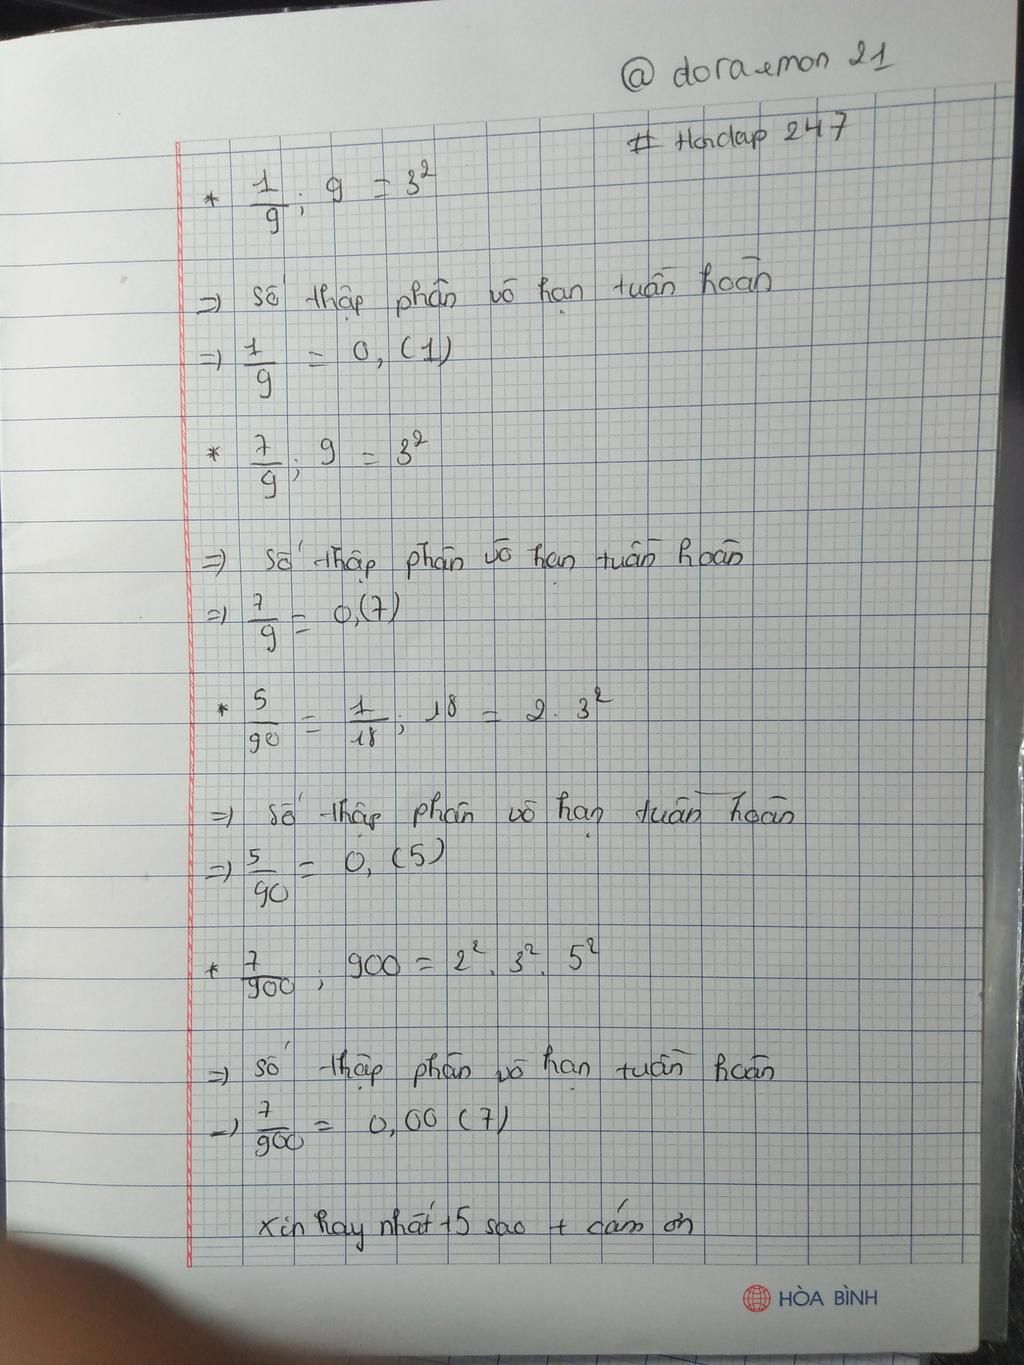 @ doraemon 21
# Hoidap 247
* 1/9 ; 9 = 3²
=> số thập phân vô hạn tuần hoàn
=> 1/9 = 0,(1)
* 7/9 ; 9 = 3²
=> số thập phân vô hạn tuần hoàn
=> 7/9 = 0,(7)
* 5/90 = 1/18 ; 18 = 2 . 3²
=> số thập phân vô hạn tuần hoàn
=> 5/90 = 0,(5)
* 7/900 ; 900 = 2² . 3² . 5²
=> số thập phân vô hạn tuần hoàn
=> 7/900 = 0,00(7)
xin hay nhất +5 sao + cám ơn
HÒA BÌNH